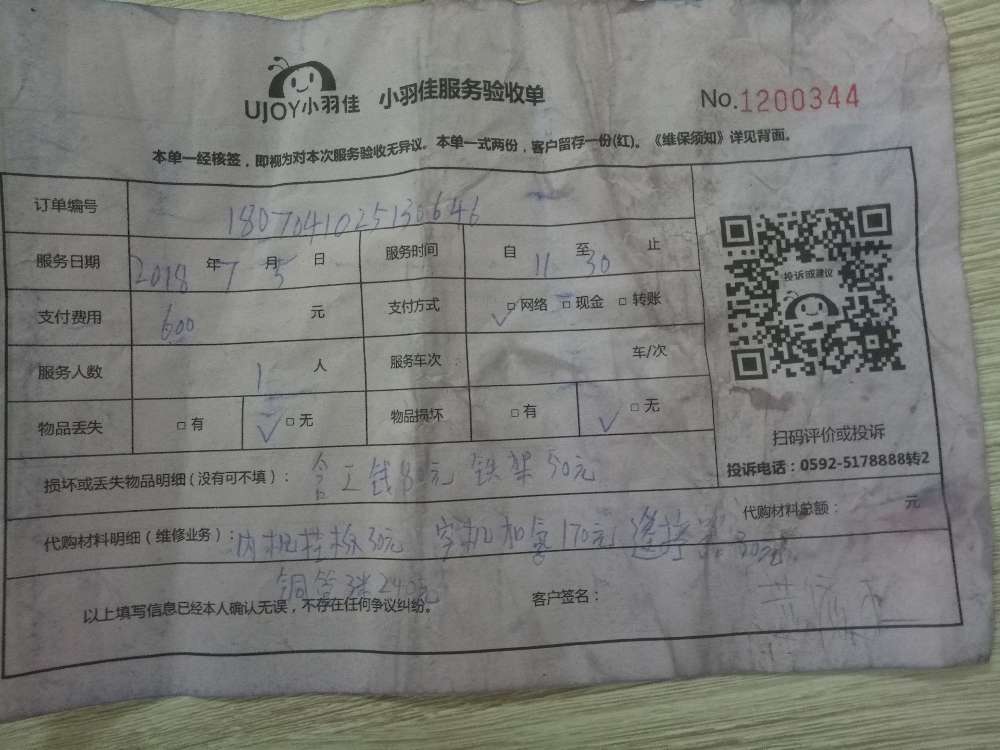 UJOY小羽佳 小羽佳服务验收单 No.1200344
本单一经核签，即视为对本次服务验收无异议。本单一式两份，客户留存一份(红)。《维保须知》详见背面。
订单编号 1807041025130646
服务日期 2018年7月5日 服务时间 自11至30止
支付费用 600元 支付方式 ✓□网络 □现金 □转账
服务人数 1人 服务车次 车/次
物品丢失 □有 ✓□无 物品损坏 □有 ✓□无
投诉或建议
扫码评价或投诉
投诉电话：0592-5178888转2
损坏或丢失物品明细（没有可不填）： 工钱80元 铁架50元
代购材料总额： 元
代购材料明细（维修业务）：内机挂板30元 空机加氟170元 遥控器30元
铜管3米240元
以上填写信息已经本人确认无误，不存在任何争议纠纷。 客户签名：